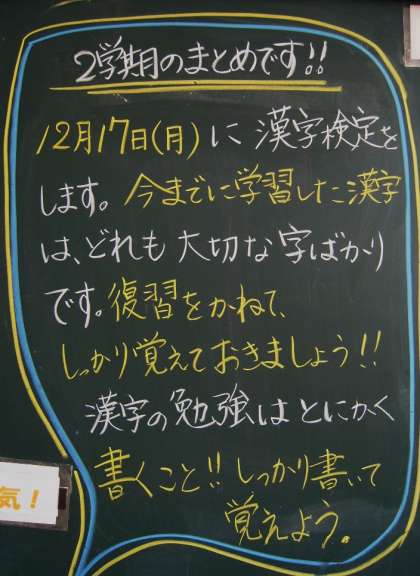 2学期のまとめです!!
12月17日(月)に漢字検定を
します。今までに学習した漢字
は、どれも大切な字ばかり
です。復習をかねて、
しっかり覚えておきましょう!!
漢字の勉強はとにかく
書くこと!!しっかり書いて
覚えよう。
気!